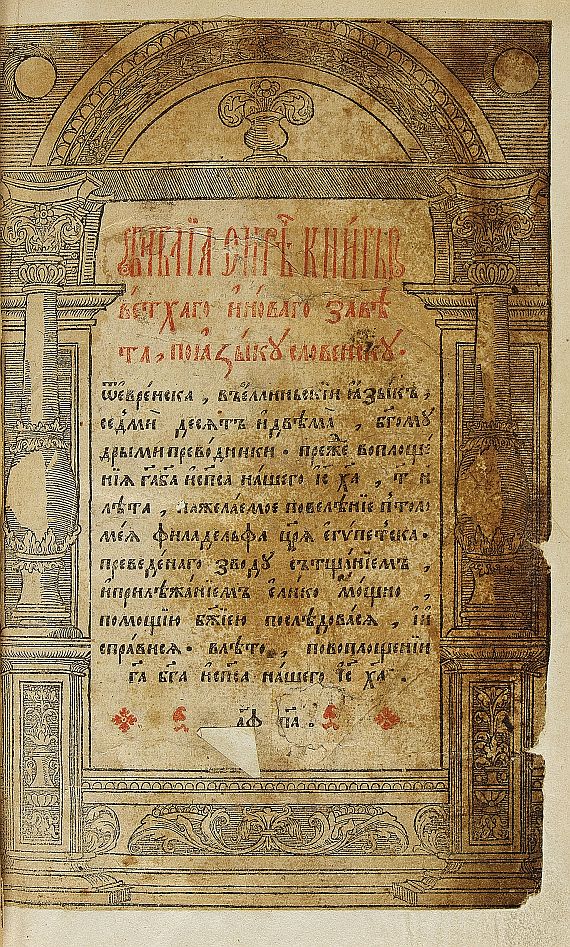 БИБЛІА СИРѢЧ КНИГЫ
ВЕТХАГО И НОВАГО ЗАВѢ
ТА, ПОꙖЗЫКУ СЛОВЕНСКУ.
Ѿеврейска, въеллиньскїи ꙗзыкъ,
седмиⷨ десѧтъ идвѣма, бг҃ому
дрыми преводники. прежⷣе воплоще
нїѧ гⷭ҇а бг҃а испⷭ҇а нашего і҆с х҃а, т҃ и҃
лѣта, нажелаемое повелѣнїе птоло
меѧ филаделъфа цр҃ѧ египетъска.
преведенаго зводу сътщанїемъ,
иприлѣжанїемъ елико мощно,
помощїю бж҃їею послѣдовасѧ, їи
справисѧ. влѣто, повоплощенїи
гⷭ҇а бг҃а испⷭ҇а нашего і҆с х҃а.
҂аф п҃а.